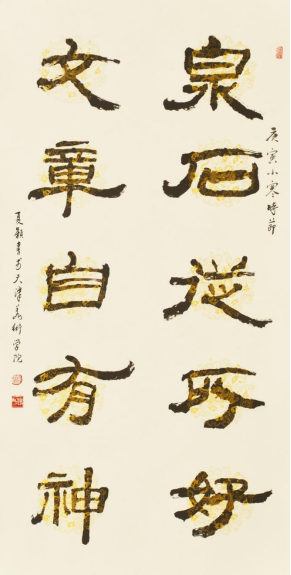 庚寅小寒時節
泉石從所好
文章自有神
夏穎書於天津美術學院